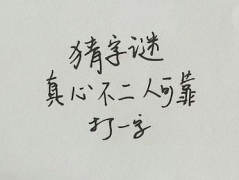 猜字谜
真心不二人可靠
打一字